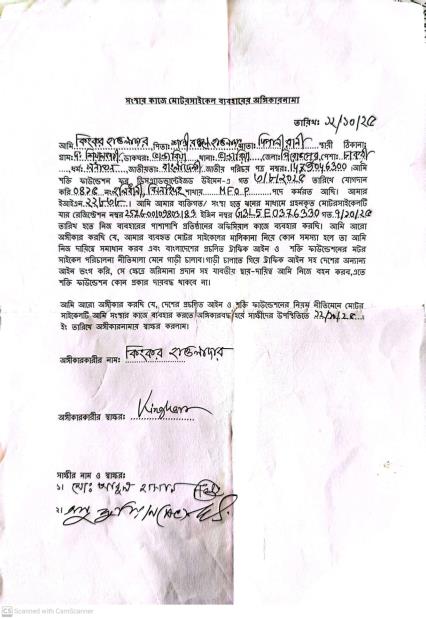 সংস্থার কাজে মোটরসাইকেল ব্যবহারের অঙ্গিকারনামা
তারিখঃ ২২/১০/২৫
আমি কিংকর হাওলাদার পিতাঃ হাওলাদার মাতাঃ শিবানী রানী স্থায়ী ঠিকানাঃ
গ্রামঃ ডাকঘরঃ থানাঃ জেলাঃ পিরোজপুর পেশাঃ চাকরী
ধর্মঃ সনাতন জাতীয়তাঃ বাংলাদেশী জাতীয় পরিচয় পত্র নম্বরঃ আমি
শক্তি ফাউন্ডেশন ফর ডিসএ্যাডভান্টেইজড উইমেন-এ গত তারিখে যোগদান
করি 0424 নং শাখার MFOP পদে কর্মরত আছি। আমার
ইআইএন আমি আমার ব্যক্তিগত/ সংস্থা হতে ঋনের মাধ্যমে গ্রহনকৃত মোটরসাইকেলটি
যার রেজিষ্টেশন নম্বরঃ ইঞ্জিন নম্বর G3L5E0376330 গত 9/20/25
তারিখ হতে নিজ ব্যবহারের পাশাপাশি প্রতিষ্ঠানের অফিসিয়াল কাজে ব্যবহার করছি। আমি আরো
অঙ্গীকার করছি যে, আমার ব্যবহৃত মোটর সাইকেলের মালিকানা নিয়ে কোন সমস্যা হলে তা আমি
নিজ দায়িত্বে সমাধান করব এবং বাংলাদেশের প্রচলিত ট্রাফিক আইন ও শক্তি ফাউন্ডেশনের মটর
সাইকেল পরিচালনা নীতিমালা মেনে গাড়ী চালাব। গাড়ী চালাতে গিয়ে ট্রাফিক আইন সহ দেশের অন্যান্য
আইন ভংগ করি, সে ক্ষেত্রে জরিমানা প্রদান সহ যাবতীয় দ্বায়-দায়িত্ব আমি নিজে বহন করব,এতে
শক্তি ফাউন্ডেশন কোন প্রকার দায়বদ্ধ থাকবে না।
আমি আরো অঙ্গীকার করছি যে, দেশের প্রচলিত আইন ও শক্তি ফাউন্ডেশনের নিয়ম নীতিমেনে মোটর
সাইকেলটি আমি সংস্থার কাজে ব্যবহার করতে অঙ্গিকারবদ্ধ হয়ে সাক্ষীদের উপস্থিতিতে ২২/১০/২৫
ইং তারিখে অঙ্গীকারনামায় স্বাক্ষর করলাম।
অঙ্গীকারকারীর নামঃ কিংকর হাওলাদার
অঙ্গীকারকারীর স্বাক্ষরঃ
সাক্ষীর নাম ও স্বাক্ষরঃ
১। মোঃ
২।
CS Scanned with CamScanner